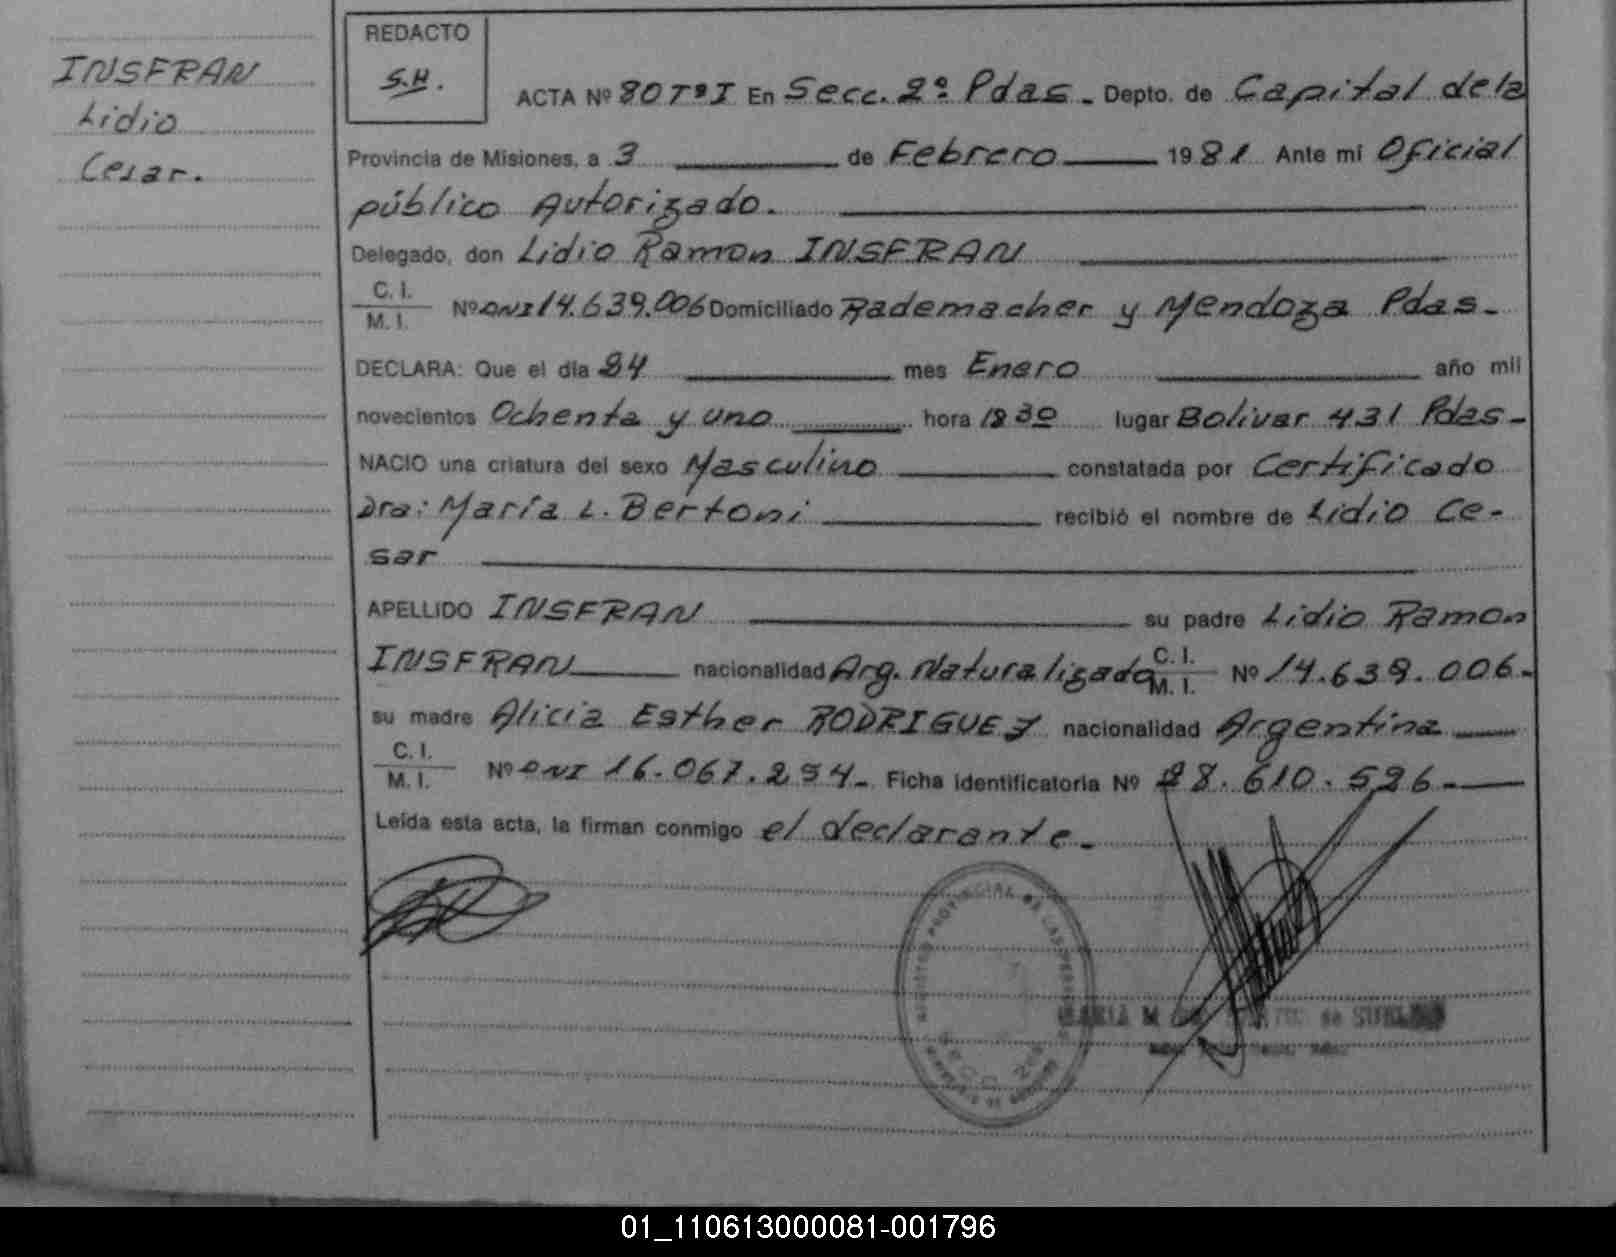 INSFRAN
Lidio
Cesar.
REDACTO
S.H.
ACTA Nº 80 TºI En Secc. 2º Pdas. Depto. de Capital de la
Provincia de Misiones, a 3 de Febrero 1981 Ante mi Oficial
público Autorizado.
Delegado, don Lidio Ramon INSFRAN
C. I.
M. I.
Nº DNI 14.639.006 Domiciliado Rademacher y Mendoza Pdas-
DECLARA: Que el día 24 mes Enero año mil
novecientos Ochenta y uno hora 1230 lugar Bolivar 431 Pdas-
NACIO una criatura del sexo Masculino constatada por Certificado
Dra: María L. Bertoni recibió el nombre de Lidio Ce-
sar
APELLIDO INSFRAN su padre Lidio Ramon
INSFRAN nacionalidad Arg. Naturalizado C. I. M. I. Nº 14.639.006-
su madre Alicia Esther RODRIGUEZ nacionalidad Argentina
C. I.
M. I.
Nº DNI 16.067.254- Ficha identificatoria Nº 28.610.526-
Leída esta acta, la firman conmigo el declarante-
PROVINCIAL DE LAS PERSONAS
SECC 2ª
MARIA M de SUELDO
01_110613000081-001796